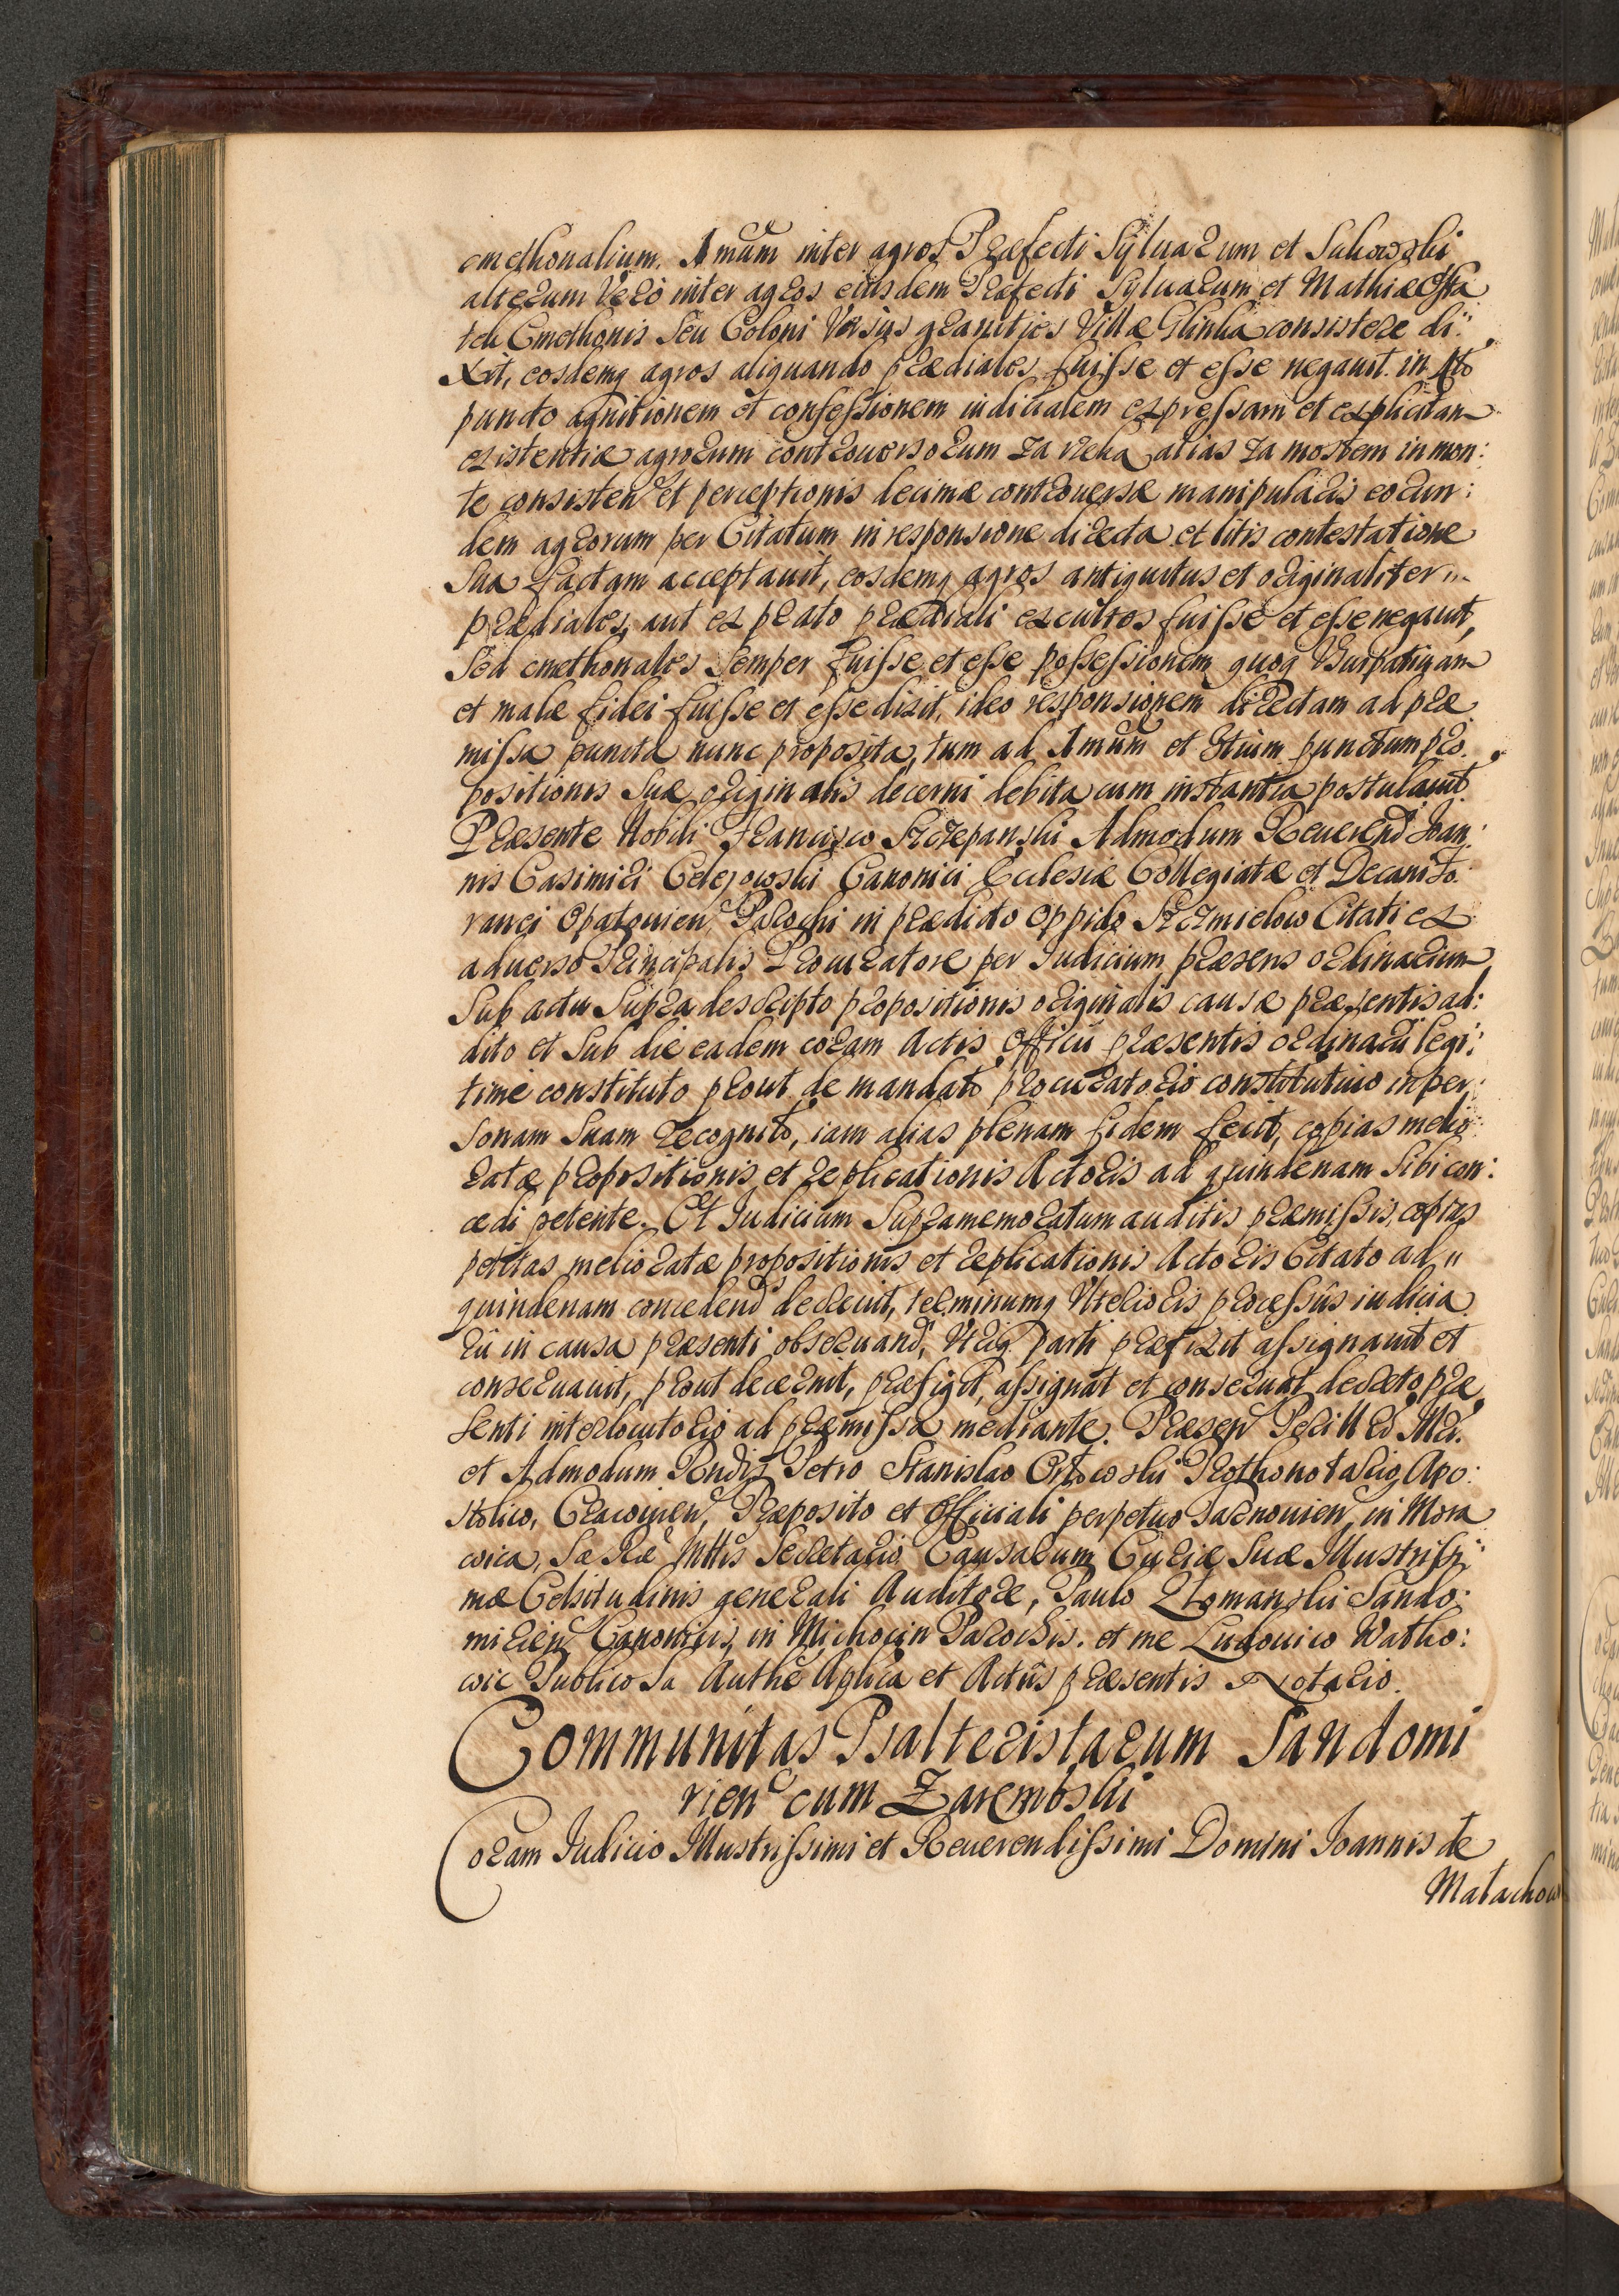 cmethonalium. 1mum inter agros Præfecti Syluarum et Sukowski
alterum Vero inter agros eiusdem Præfecti Syluarum et Mathiæ
tek Cmethonis Seu Coloni Versus granities Villæ Glinka consistere di:
xit, eosdemq agros aliquando prædiales fuisse et esse negauit. in
puncto agnitionem et confessionem iudicialem expressam et explicitam
existentiæ agrorum controuersorum za rzeka alias za mostem in mon:
te consisten et perceptionis decimæ controuersæ manipularis eorun:
dem agrorum per Citatum in responsione directa et litis contestatione
Sua factam acceptauit, eosdemq agros antiquitus et originaliter
prædiales, aut ex prato prædiali excultos fuisse et esse negauit,
Sed cmethonales Semper fuisse et esse possessionem quoq Vsurpatiuam
et malæ fidei fuisse et esse dixit, ideo responsionem directam ad præ
missa puncta nunc proposita, tum ad 1mum et 8tium punctum pro
positionis Suæ originalis decerni debita cum instantia postulauit.
Præsente Nobili Francisco Szczepanski Admodum Reuerend Ioan:
nis Casimiri Celejowski Canonici Ecclesiæ Collegiatæ et Decani fo:
ranei Opatouien, Parochi in prædicto Oppido Szczmielow Citati ex
aduerso Principalis Procuratore per Iudicium præsens ordinarium
Sub actu Supra descripto propositionis originalis causæ præsentis ad:
dito et Sub die eadem coram Actis Officii præsentis ordinarii legi:
time constituto prout de mandato procuratorio constitutiuo in per:
sonam Suam recognito, iam alias plenam fidem fecit, copias melio:
ratæ propositionis et replicationis Actoris ad quindenam Sibi con:
cedi petente. Et Iudicium Supramemoratum auditis præmissis, copias
petitas melioratæ propositionis et replicationis Actoris Citato ad "
quindenam concedend decreuit, terminumq Vlterioris processus iudicia
rii in causa præsenti obseruand, Vtriq parti præfixit assignauit et
conseruauit, prout decernit, præfigit, assignat et conseruat decreto præ
senti interlocutorio ad præmissa mediante. Præsen Perill
et Admodum Rndis Petro Stanislao Orłowski Prothonotario Apo:
stolico, Cracouien, Præposito et Officiali perpetuo Tarnouien, in Mora
wica, Sæ Ræ Mttis Secretario Causarum Curiæ Suæ Illustrissi:
mæ Celsitudinis generali Auditore, Paulo Sando:
mirien Canonicis, in Michocin Parochis. et me Ludouico Watko:
wic Publico Sa Authe Aplica et Actus præsentis Notario.
Communitas Psalteristarum Sandomi
rien cum Zarembski
Coram Iudicio Illustrissimi et Reuerendissimi Domini Ioannis de
Małachow